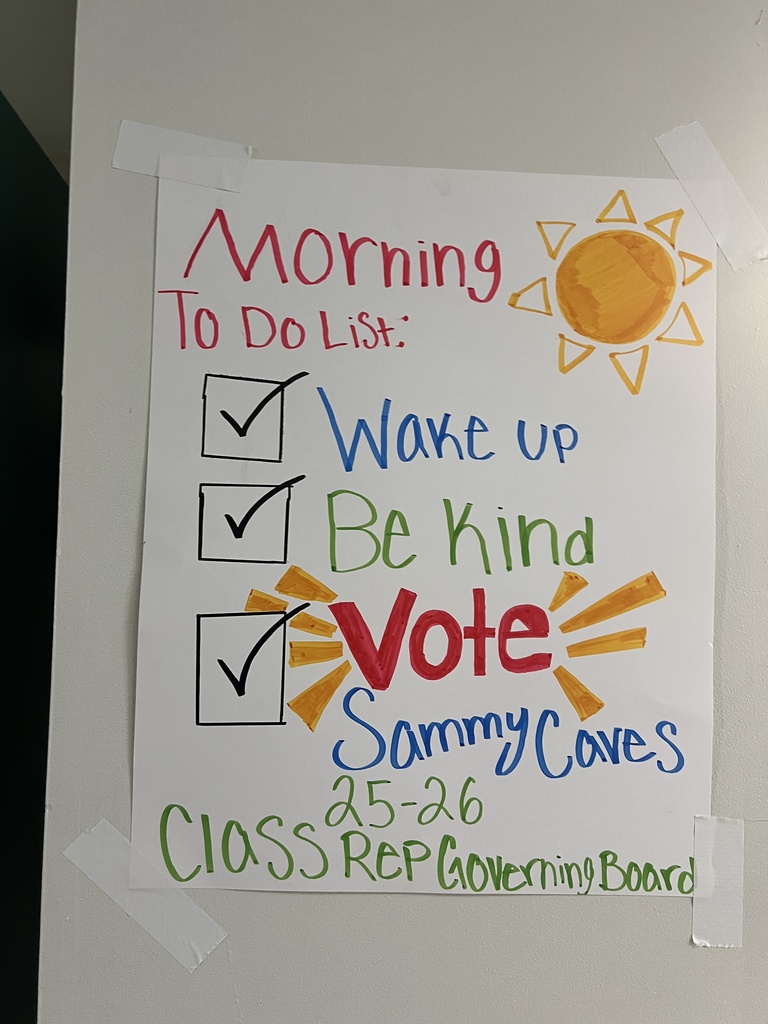 Morning
To Do List:
Wake up
Be Kind
Vote
Sammy Caves
25-26
Class Rep Governing Board